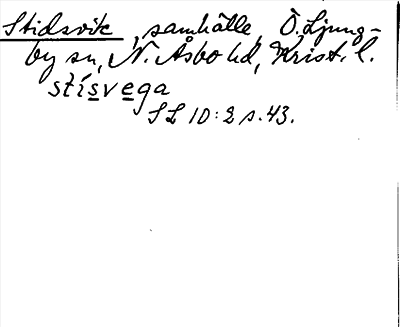 Stidsvik, samhälle, Ö. Ljung-
by sn, N. Åsbo hd, Krist. l.
stísvega
SL 10:2 s. 43.